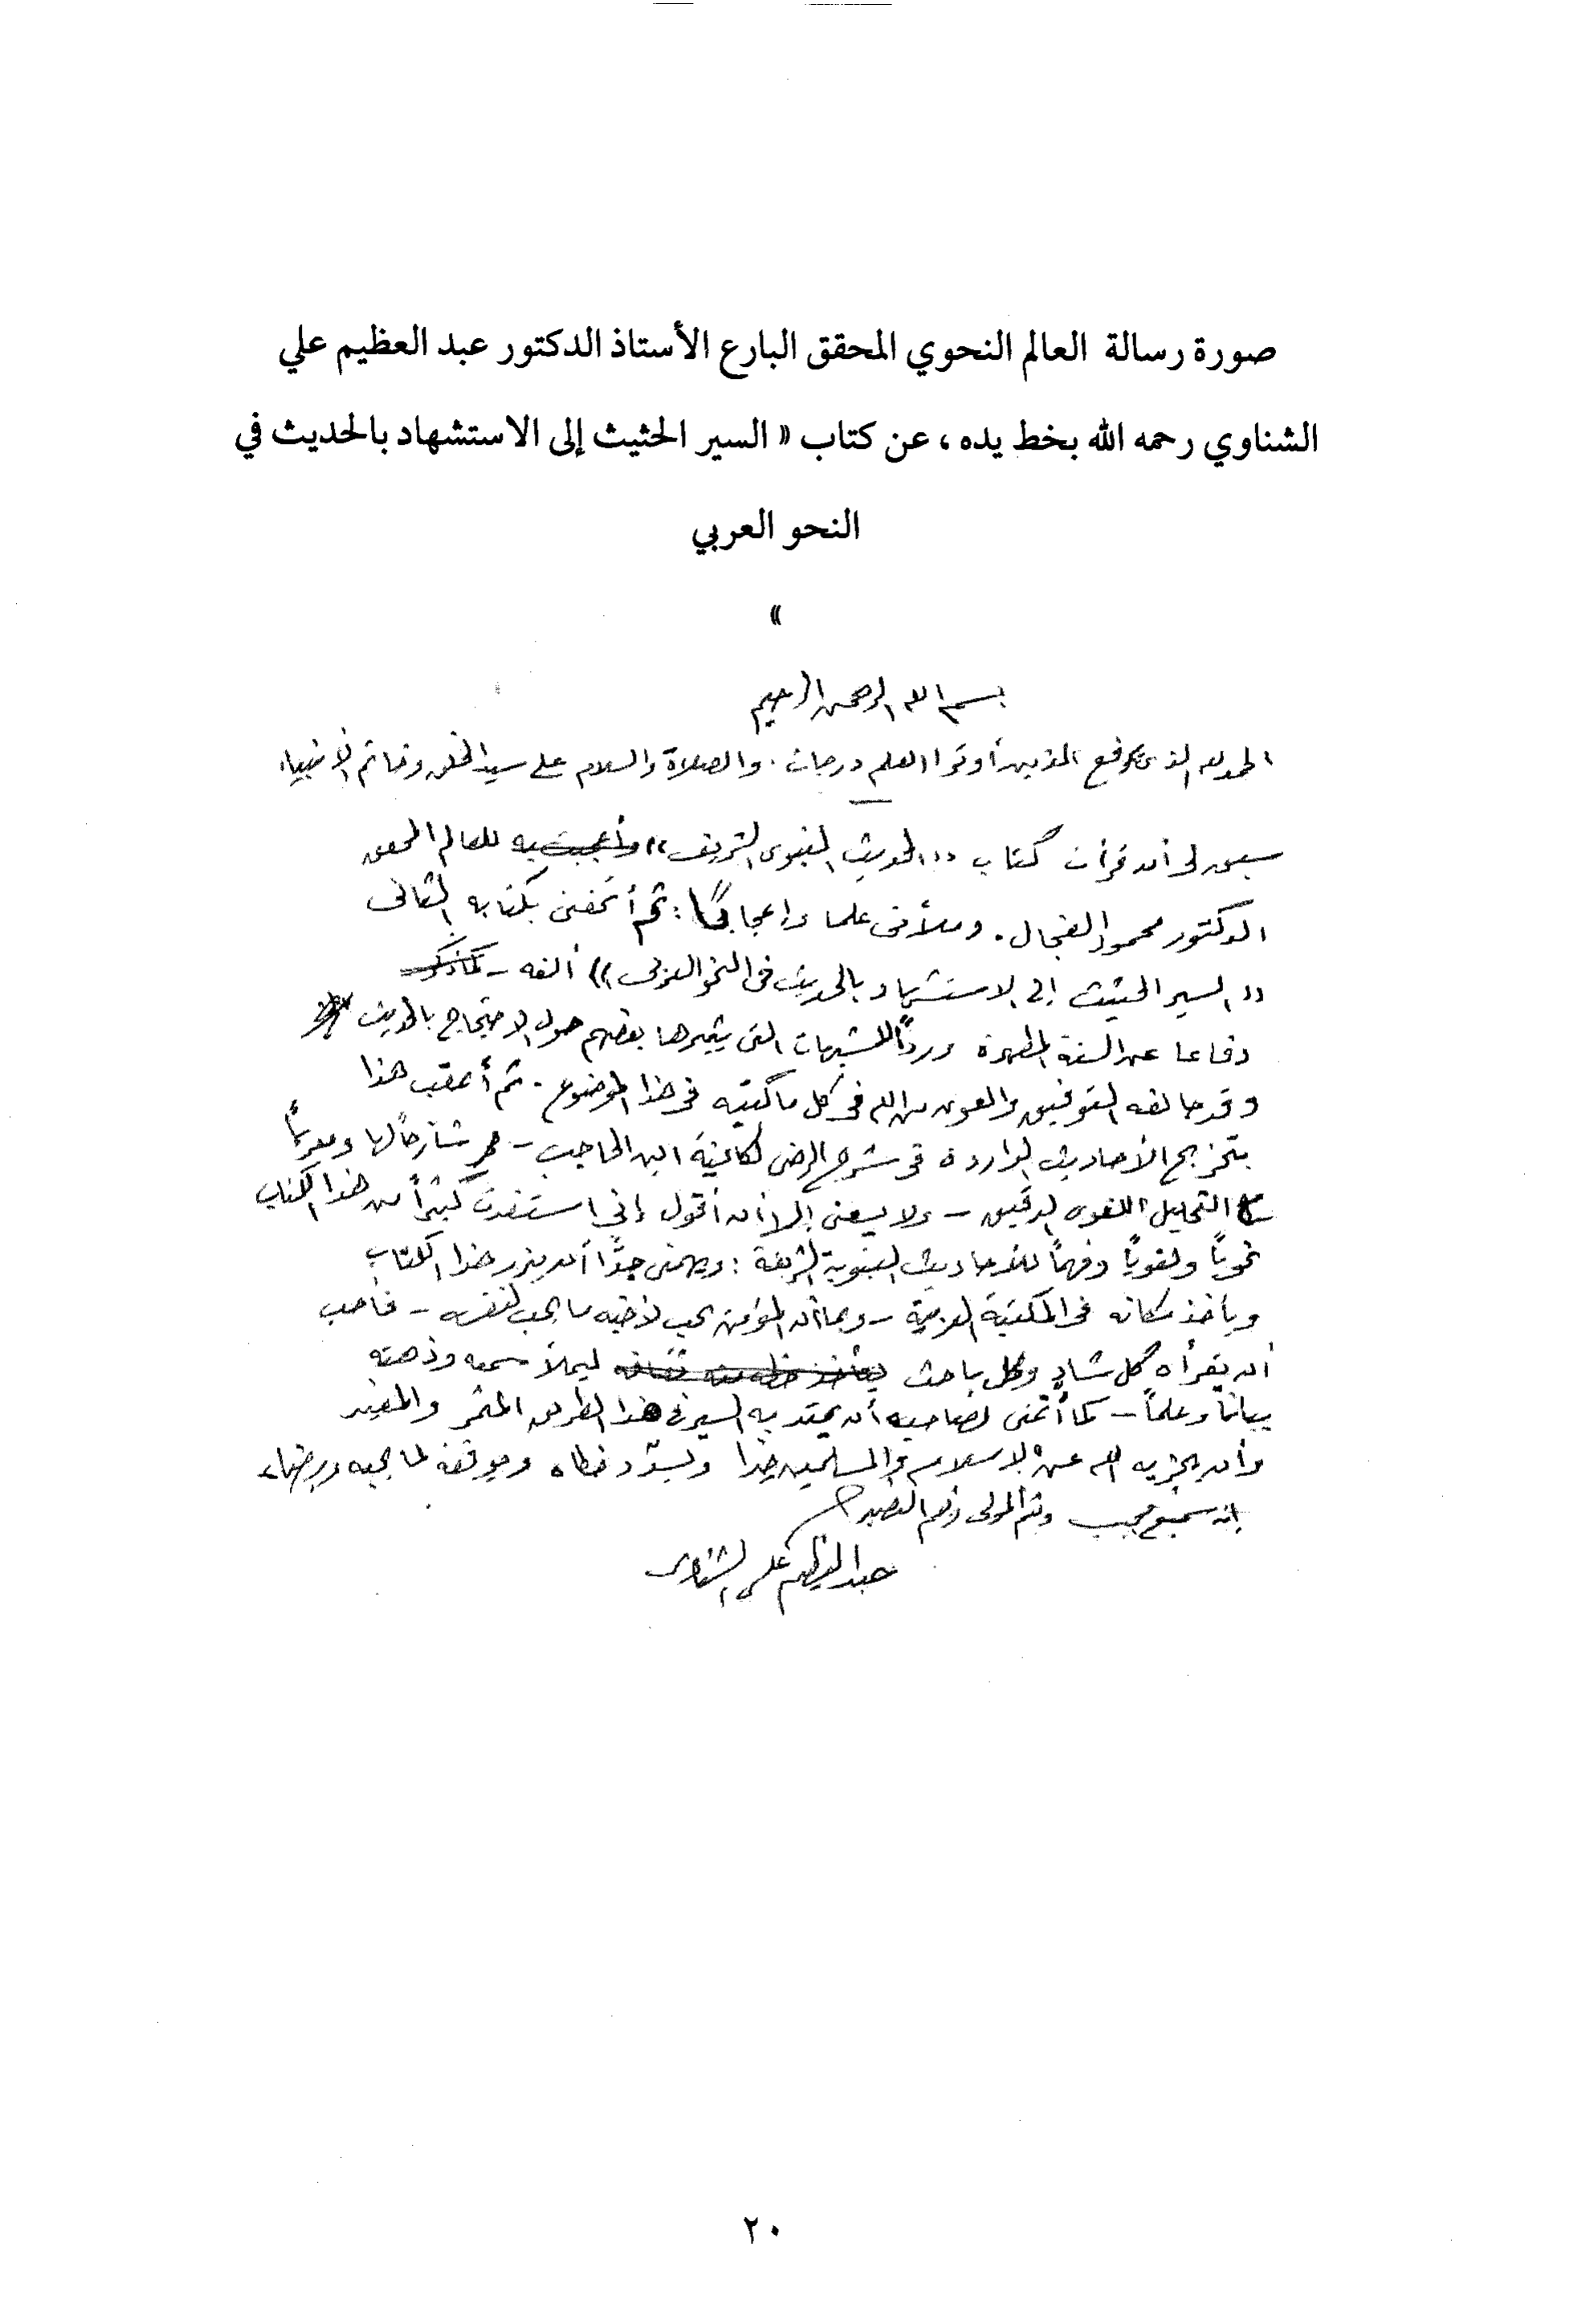 صورة رسالة العالم النحوي المحقق البارع الأستاذ الدكتور عبد العظيم علي
الشناوي رحمه الله بخط يده ، عن كتاب « السير الحثيث إلى الاستشهاد بالحديث في
النحو العربي
»
بسم الله الرحمن الرحيم
الحمد لله الذى يرفع الذين أوتوا العلم درجات . والصلاة والسلام على سيد الخلق وخاتم الأنبياء
سبق لى أن قرأت كتاب «الحديث النبوى الشريف» وأعجبت به للعالم المحقق
الدكتور محمود الفجال . وملأنى علما وإعجابًا : ثم أتحفنى بكتابه الثانى
«السير الحثيث إلى الاستشهاد بالحديث فى النحو العربى» ألفه - كما ذكر
دفاعا عن السنة المطهرة وردًا للشبهات التى يثيرها بعضهم حول الاحتجاج بالحديث
وقد حالفه التوفيق والعون من الله فى كل ما كتبه فى هذا الموضوع . ثم أعقب هذا
بتخريج الأحاديث الواردة فى شرح الرضى لكافية ابن الحاجب - شارحًا لها ومعربًا
التحليل اللغوى الدقيق - ولا يسعنى إلا أن أقول إنى استفدت كثيرًا من هذا الكتاب
نحويًا ولغويًا وفهمًا للأحاديث النبوية الشريفة : ويهمنى جدًا أن هذا الكتاب
ويأخذ مكانه فى المكتبة العربية - وبما أن المؤمن يحب لأخيه ما يحب لنفسه - فأحب
أن يقرأه كل شادٍ وكل باحث ليأخذ حظه منه ليملأ سمعه وذهنه
بيانا وعلمًا - كما أتمنى لصاحبه أن يمتد به السير فى هذا الطريق المثمر والمفيد
وأن يجزيه الله عن الإسلام والمسلمين خيرا ويسدّد خطاه ويوفقه لما يحبه ويرضاه
إنه سميع مجيب ونعم المولى ونعم النصير
عبد العظيم على الشناوى
٢٠